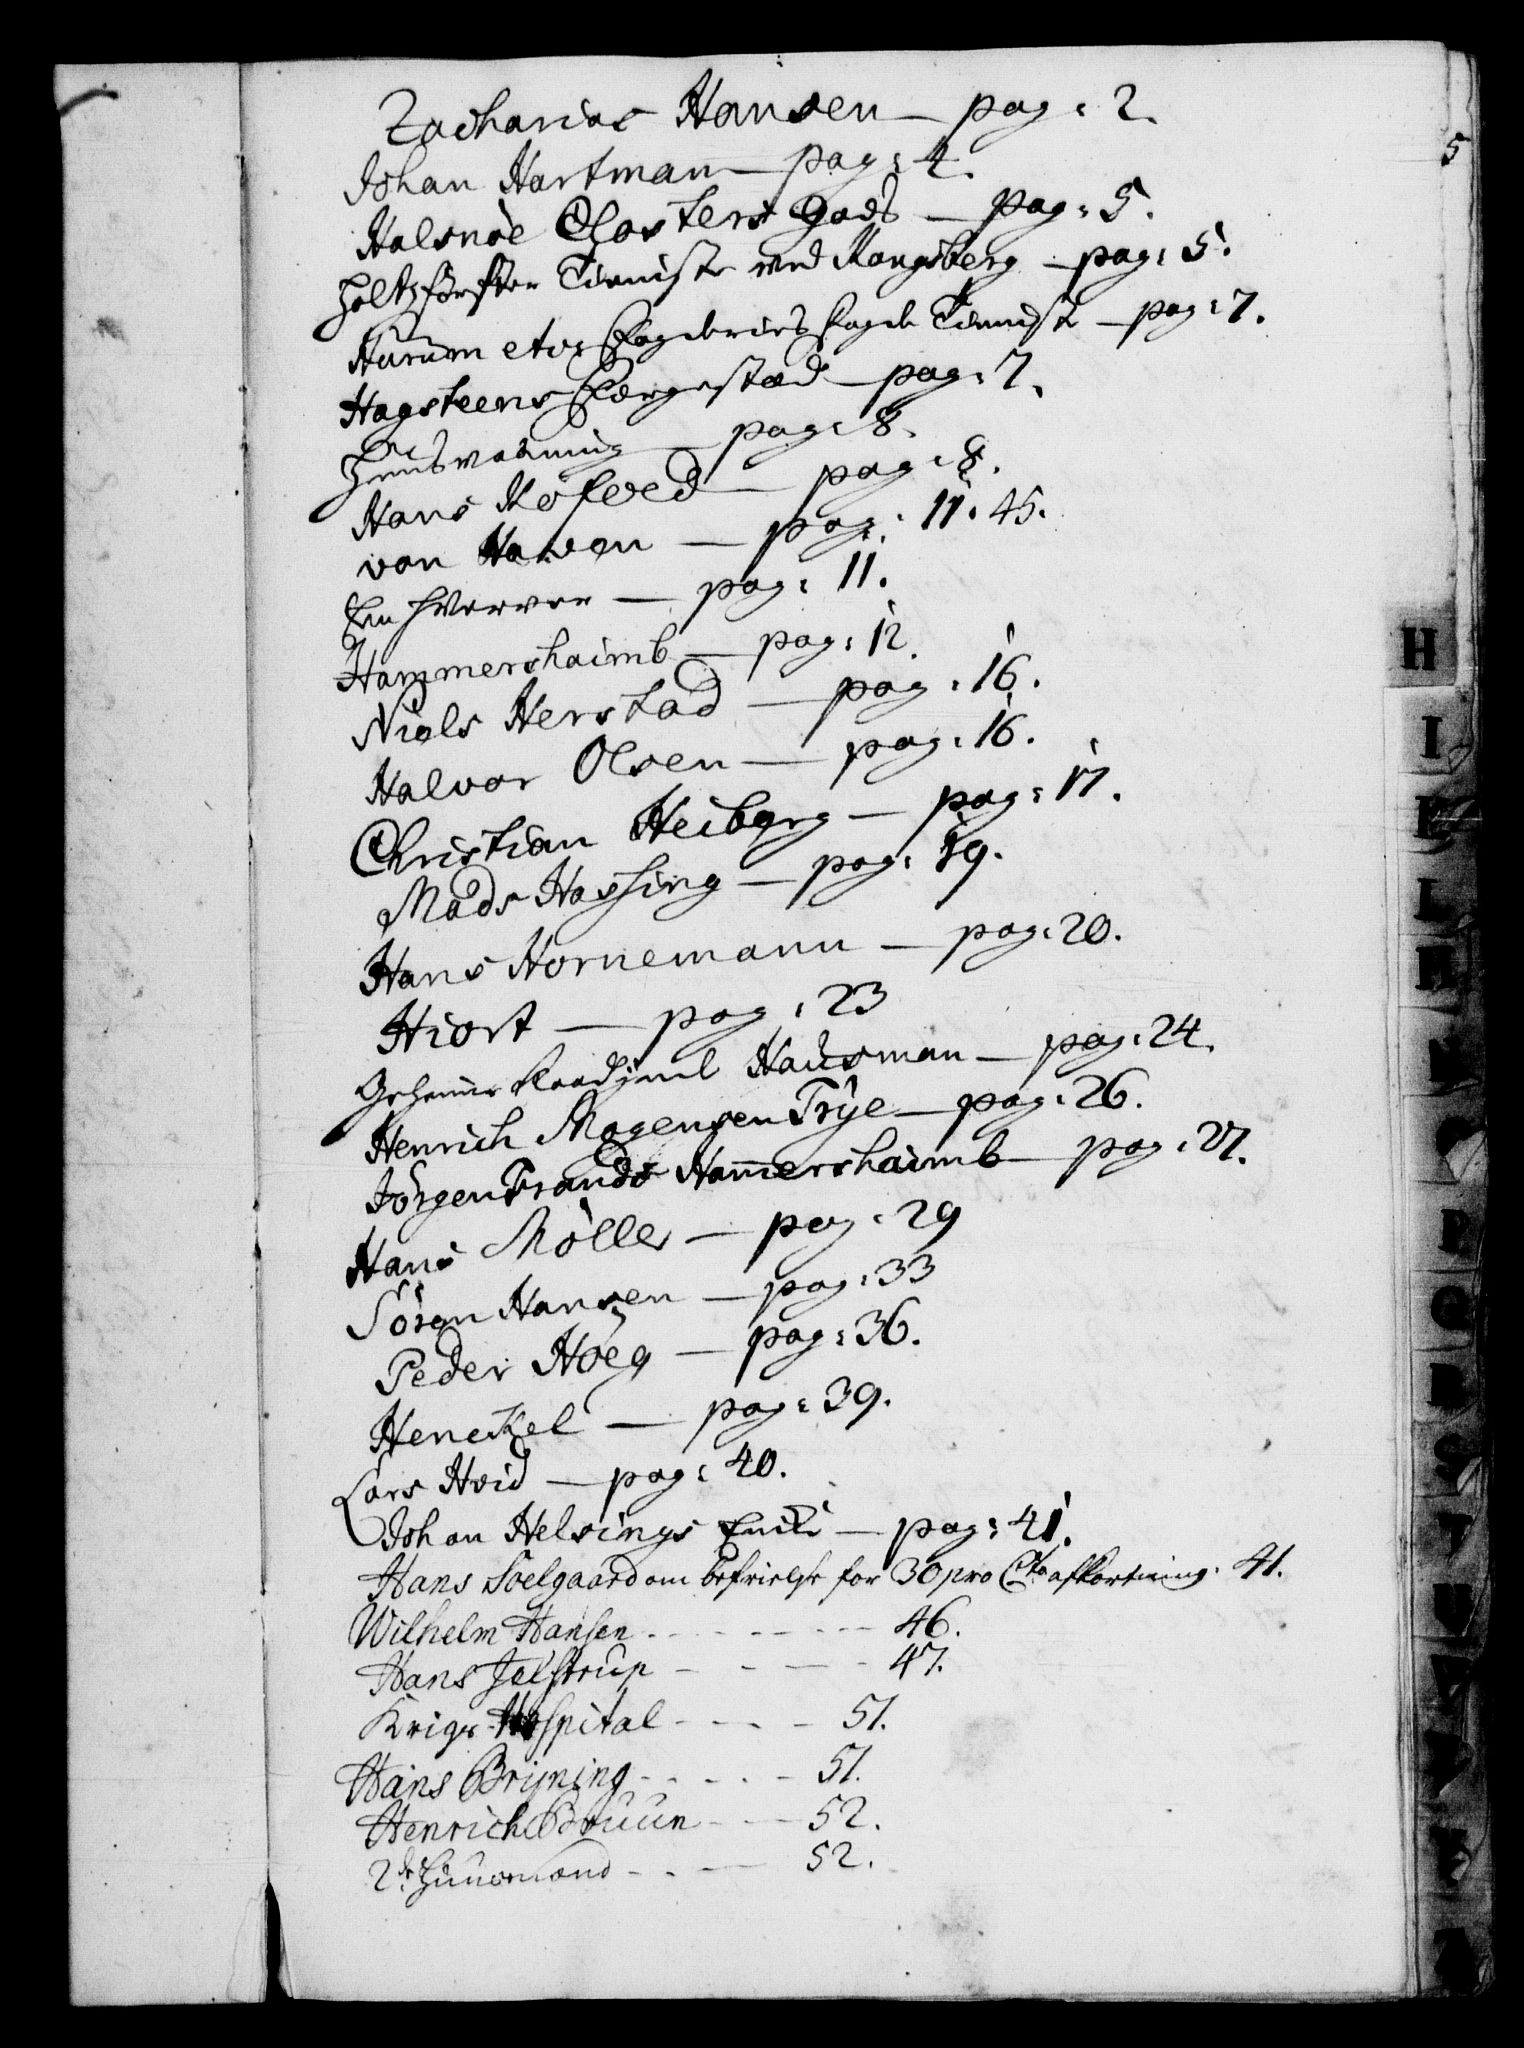 Zacharias Hansen — pag: 2.
5
Johan Hartman — pag: 4.
Halsnöe Closters Gods — pag: 5.
Holtzförster Tieniste ved Kongsberg — pag: 5.
Hurum etc: Fogderies Fogde Tieniste — pag: 7.
Hagsteens Færgestæd — pag: 7.
pag: 8.
Hans Kofoed — pag: 8.
von Haven — pag: 11. 45.
En Hverver — pag: 11.
Hammershaimb — pag: 12.
Niels Herstad — pag: 16.
Halvor Olsen — pag: 16.
Christian Heiberg — pag: 17.
Mads Hassing — pag: 19.
Hans Hornemann — pag: 20.
Hiort — pag: 23
Geheime Raadinde Hausman — pag: 24.
Henrich Mogensen Trÿe — pag: 26.
Jörgen Frands Hamershaimb — pag: 27.
Hans Möller — pag: 29
Sören Hansen — pag: 33
Peder Höeg — pag: 36.
Heneckel — pag: 39.
Lars Hvid — pag: 40.
Johan Helsings Encke — pag: 41.
Hans Soelgaard om befrielse for 30 pro Cto afkortning. 41.
Wilhelm Hansen - - - - - 46.
Hans Jelstrup - - - - 47.
Krigs-Hospital - - - - 51.
Hans Bryning - - - - - 51.
Henrich Bruun - - - 52.
2de Huusmænd - - - 52.
H
I
K
L
M
N
O
P
Q
R
S
T
U